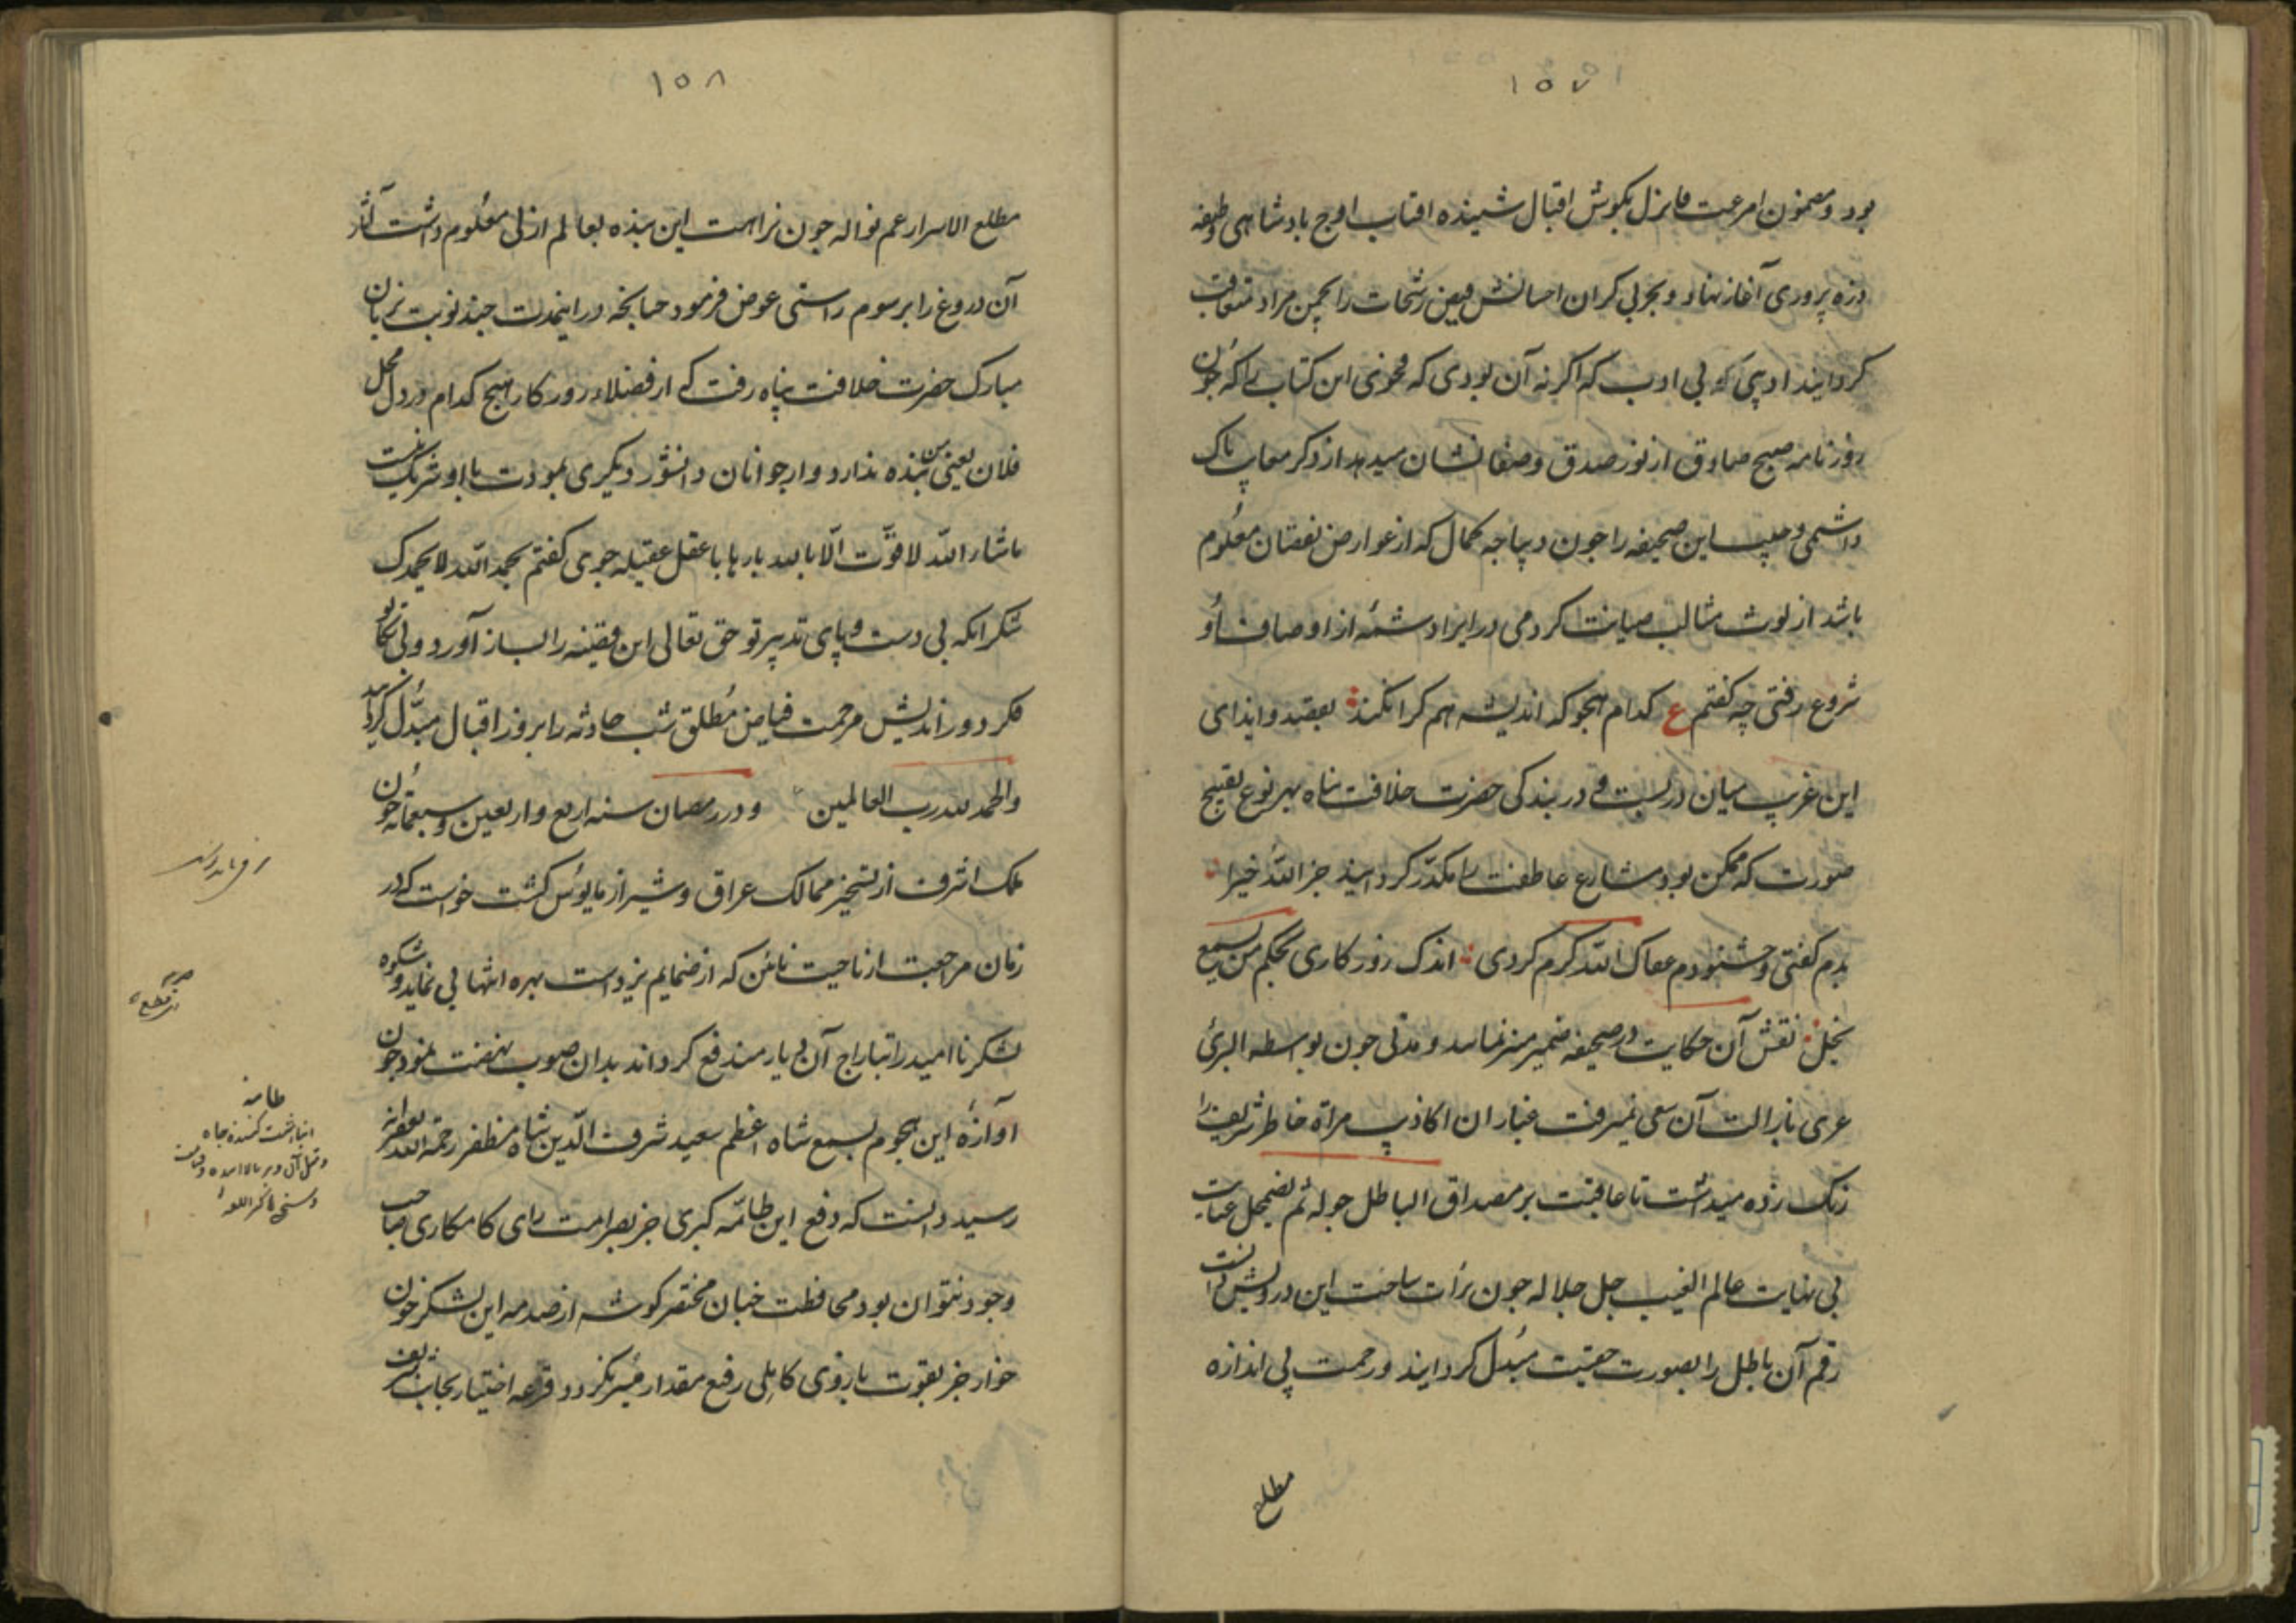 ۱۵۷
بود و مضمون امرعیت فانزل بکوش اقبال شنیده افتاب اوج بادشاهی وظیفه
ذره پروری آغاز نهاد و بحر بی کران احسانش فیض رشحات را بچمن مراد متعاقب
کردانید اد پی که بی ادب که اکر نه آن بودی که فحوی این کتاب را که چون
روزنامه صبح صادق از نور صدق و صفا نشان میدهد از ذکر معایب پاک
داشتمی و جلباب این صحیفه را چون دیباجه کمال که از عوارض نقصان معلوم
باشد از لوث مثالب صیانت کردمی در ایراد شمّه از اوصاف او
شروع رفتی چه کفتم ع کدام هجو که اندیشه هم کرا نکند بقصد و ایذای
این غریب میان دربست و در بندکی حضرت خلافت پناه بهر نوع تقبیح
صورت که ممکن بود مشارع عاطفت را مکدّر کردانید جز الله خیرا
بدم کفتی و خشنودم عفاک الله کرم کردی اندک روزکاری بحکم من یسمع
یخل نقش آن حکایت در صحیفه ضمیر منیر نماند و مدتی چون بواسطه البرئ
عری بازالت آن سعی نمیرفت غبار ان اکاذیب مرآة خاطر شریف را
زنک زده میداشت تا عاقبت بر مصداق الباطل جولة ثم یضمحل عنایت
بی نهایت عالم الغیب جل جلاله چون برأت ساحت این درویش دانست
رقم آن باطل را بصورت حقیقت مبدل کردانید و رحمت بی اندازه
مطلع
۱۵۸
مطلع الاسرار عم نواله چون نزاهت این بنده بعالم ازلی معلوم داشت آثار
آن دروغ را برسوم راستی عوض فرمود چنانچه در اینمدت چند نوبت بزبان
مبارک حضرت خلافت پناه رفت که از فضلاء روزکار هیچ کدام در دل محل
فلان یعنی من بنده ندارد و از جوانان دانشور دیکری بمودت با او شریک نیست
ماشاء الله لا قوّت الّا بالله بارها با عقل عقیله جوی کفتم بحمد الله لا بحمدک
شکر انکه بی دست و پای تدبیر تو حق تعالی این سفینه را بساز آورد و بی تکاپو
فکر دور اندیش مرحمت فیاض مُطلق شب حادثه را بروز اقبال مبدّل کردانید
والحمد لله رب العالمین و در رمضان سنه اربع و اربعین و سبعمائه چون
ملک اشرف از تسخیر ممالک عراق و شیراز مایوس کشت خواست که در
زمان مراجعت از ناحیت نائن که از ضمایم یزد است بهره انتهابی نماید و شکوه
لشکر ناامید را بتاراج آن دیار مندفع کرداند بدان صوب نهضت نمود چون
آوازه این هجوم بسمع شاه اعظم سعید شرف الدّین شاه مظفر رحمة الله
رسید دانست که دفع این طامّه کبری جز بصرامت رای کامکاری صاحب
وجود نتوان بود محافظت چنان مختصر کوشه از صدمه این لشکر خون
خوار جز بقوت بازوی کاملی رفیع مقدار میسر نکردد و قرعه اختیار بجانب شریف
طامه
انباشت کننده چاه